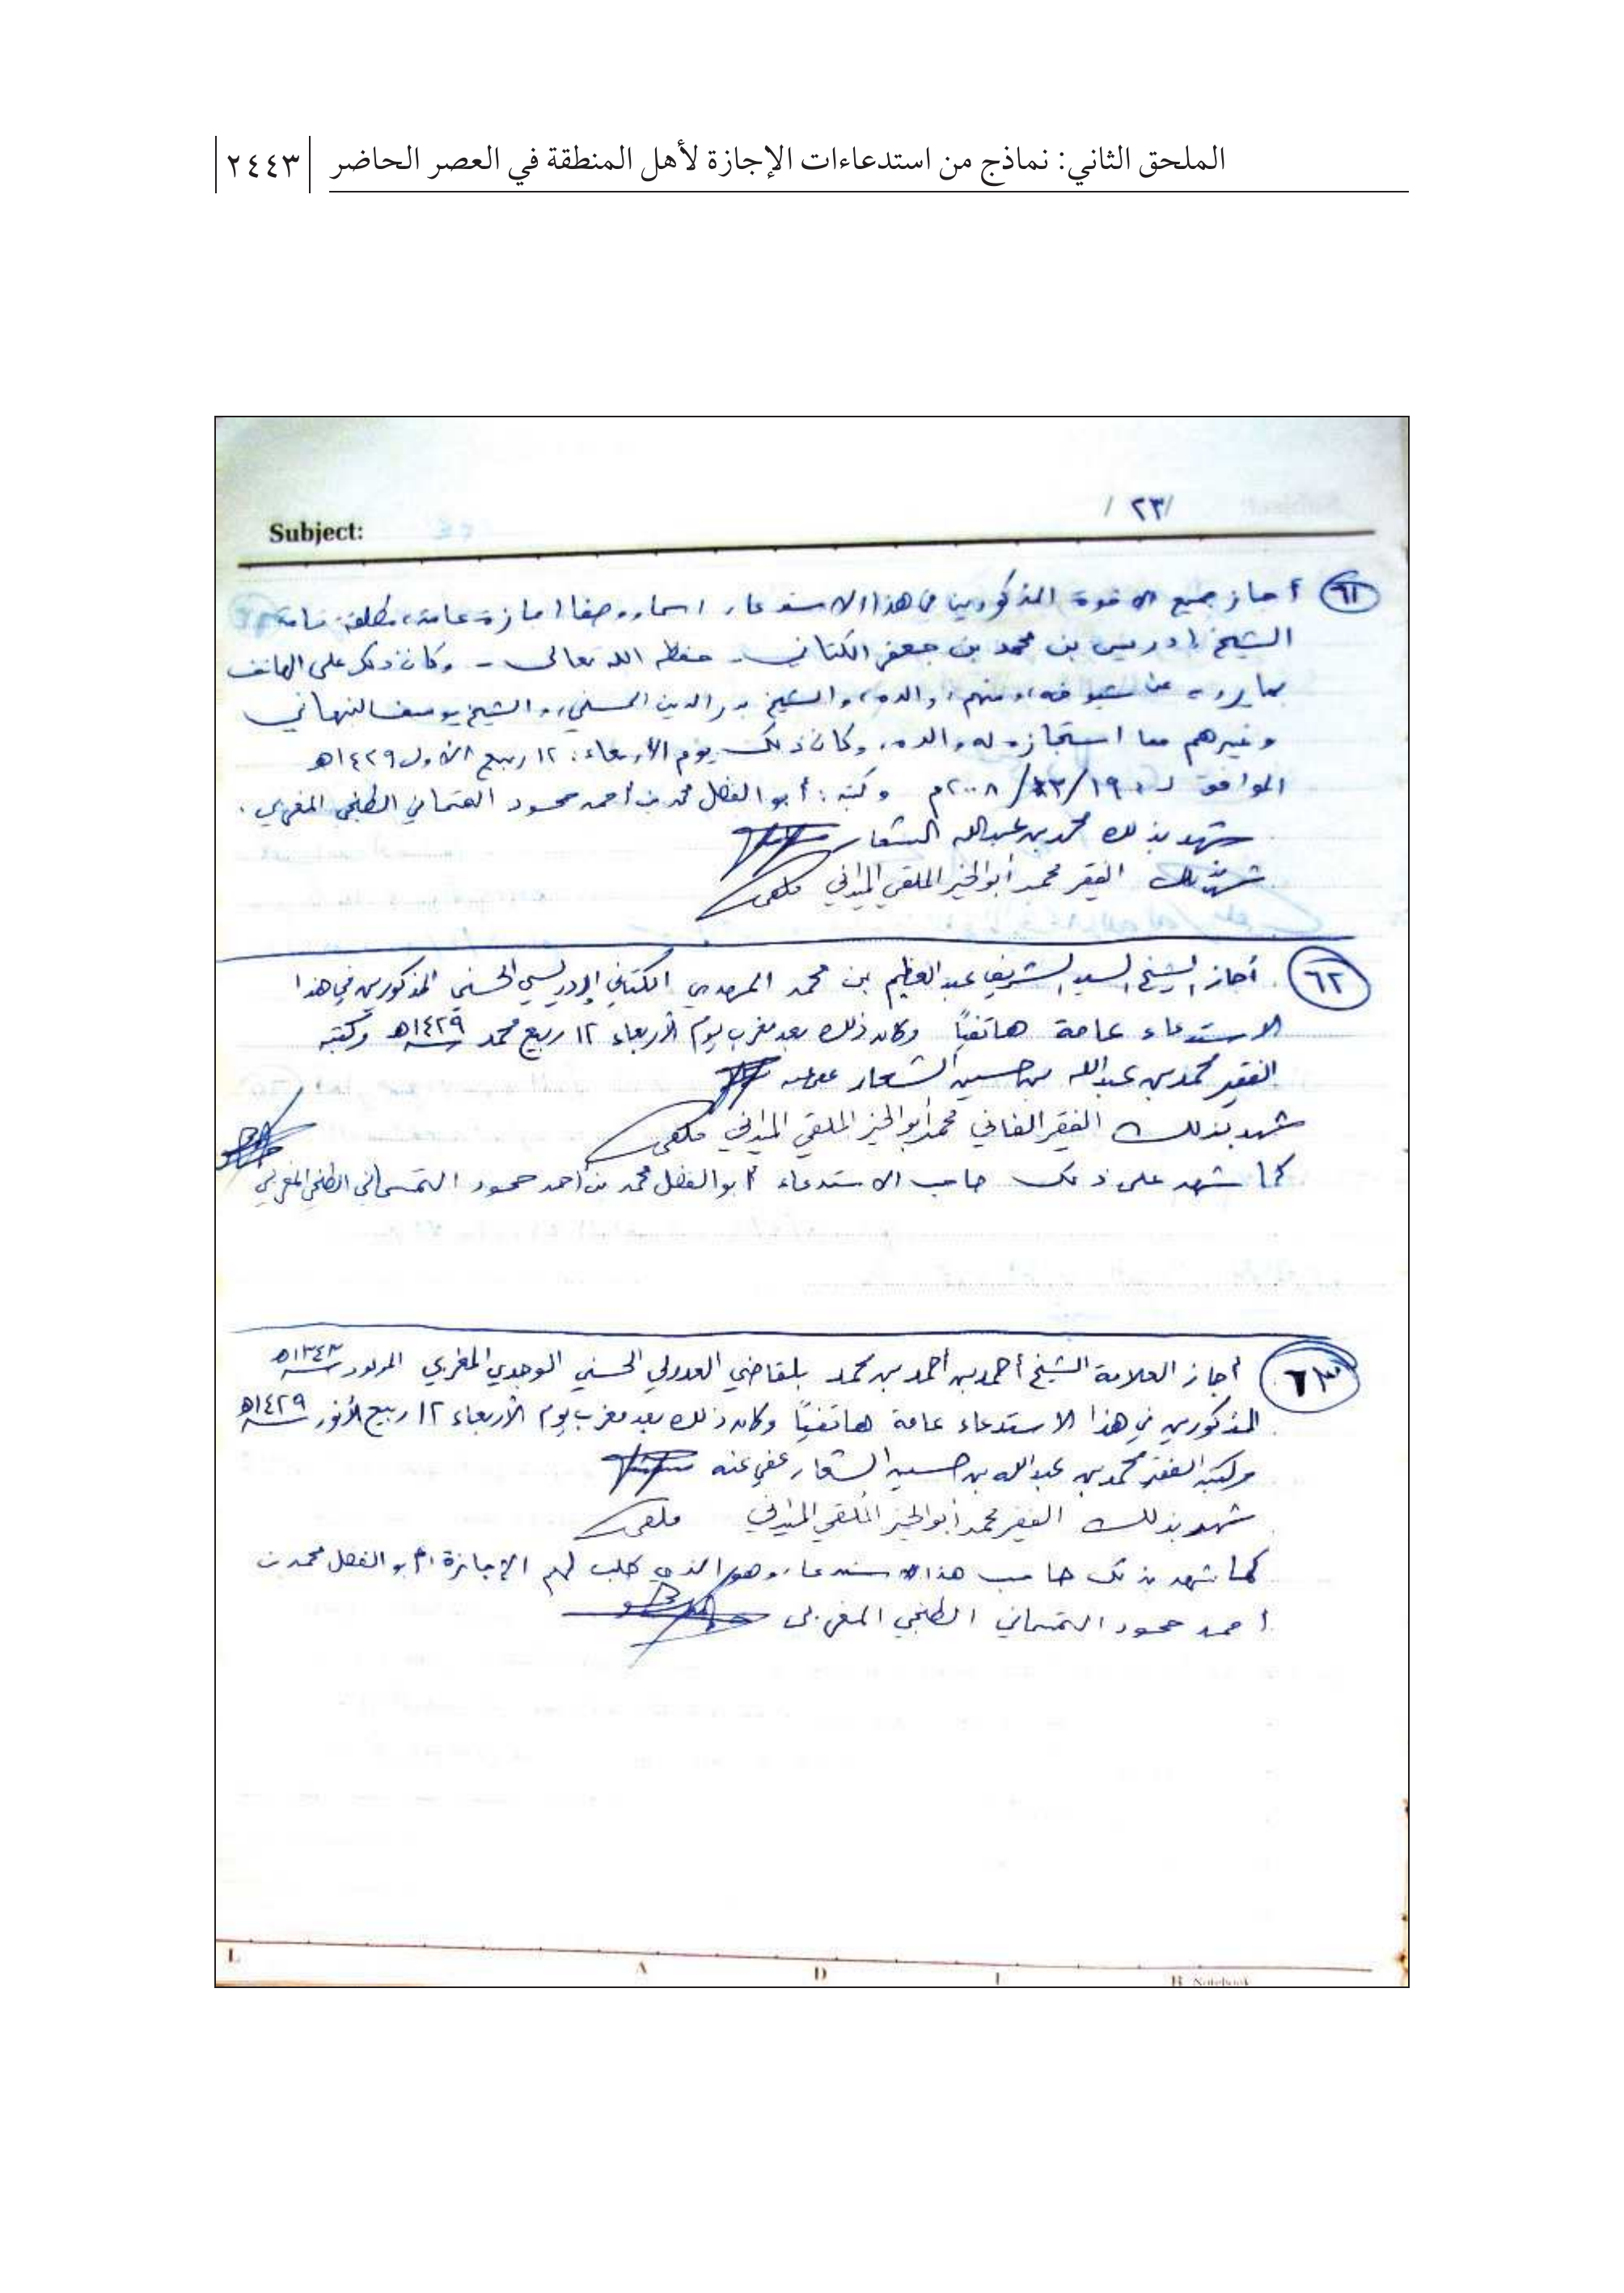 الملحق الثاني: نماذج من استدعاءات الإجازة لأهل المنطقة في العصر الحاضر ٢٤٤٣
/٢٣/
Subject:
٦١ أجاز جميع الاخوة المذكورين في هذا الاستدعاء اسما ووصفا إجازة عامة، مطلقة تامة
الشيخ إدريس بن محمد بن جعفر الكتاني - حفظه الله تعالى - وكان ذلك على الهاتف
بما يرويه عن شيوخه، ومنهم: والده، والشيخ بدر الدين الحسني، والشيخ يوسف النبهاني
وغيرهم مما استجازه له والده، وكان ذلك يوم الأربعاء: ١٢ ربيع الأول ١٤٢٩هـ
الموافق لـ: ١٩/٣/٢٠٠٨م وكتبه: أبو الفضل محمد بن أحمد حمود التمسماني الطنجي المغربي.
شهد بذلك محمد بن عبدالله الشعار
شهد بذلك الفقير محمد أبو الخير الملقي الميداني
٦٢ أجاز الشيخ السيد الشريف عبد العظيم بن محمد المهدي الكتاني الإدريسي الحسني المذكورين في هذا
الاستدعاء عامة هاتفيًا وكان ذلك بعد مغرب يوم الأربعاء ١٢ ربيع محمد سنة ١٤٢٩هـ وكتبه
الفقير محمد بن عبدالله بن حسين الشعار عفي عنه
شهد بذلك الفقير الفاني محمد أبو الخير الملقي الميداني
كما شهد على ذلك صاحب الاستدعاء أبو الفضل محمد بن أحمد حمود التمسماني الطنجي المغربي
٦٣ أجاز العلامة الشيخ أحمد بن أحمد بن محمد بلقاضي العدولي الحسني الوجدي المغربي المولود سنة ١٣٤٣هـ
المذكورين في هذا الاستدعاء عامة هاتفيًا وكان ذلك بعد مغرب يوم الأربعاء ١٢ ربيع الأنور سنة ١٤٢٩هـ
وكتبه الفقير محمد بن عبدالله بن حسين الشعار عفي عنه
شهد بذلك الفقير محمد أبو الخير الملقي الميداني
كما شهد بذلك صاحب هذا الاستدعاء، وهو الذي طلب لهم الإجازة: أبو الفضل محمد بن
أحمد حمود التمسماني الطنجي المغربي
L A D I B Notebook